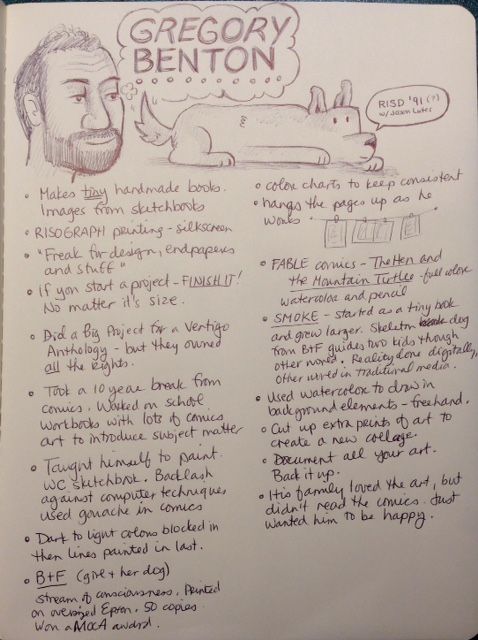 GREGORY
BENTON
RISD '91 (?)
w/ Jason Lutes
• Makes tiny handmade books.
Images from sketchbooks
• RISOGRAPH printing - silkscreen
• "Freak for design, endpapers
and stuff"
• If you start a project - FINISH IT!
No matter it's size.
• Did a Big Project for a Vertigo
Anthology - but they owned
all the rights.
• Took a 10 year break from
comics. Worked on school
workbooks with lots of comics
art to introduce subject matter
• Taught himself to paint.
WC sketchbook. Backlash
against computer techniques
used gouache in comics
• Dark to light colors blocked in
then lines painted in last.
• B+F (girl + her dog)
stream of consciousness. Printed
on oversized Epson. 50 copies
Won a MOCCA award.
• color charts to keep consistent
• hangs the pages up as he
works
• FABLE comics - The Hen and
the Mountain Turtle - full color
watercolor and pencil
• SMOKE - started as a tiny book
and grew larger. Skeleton dog
from B+F guides two kids though
other world. Reality done digitally,
other world in traditional media.
• Used watercolor to draw in
background elements - freehand.
• Cut up extra prints of art to
create a new collage.
• Document all your art.
Back it up.
• His family loved the art, but
didn't read the comics. Just
wanted him to be happy.